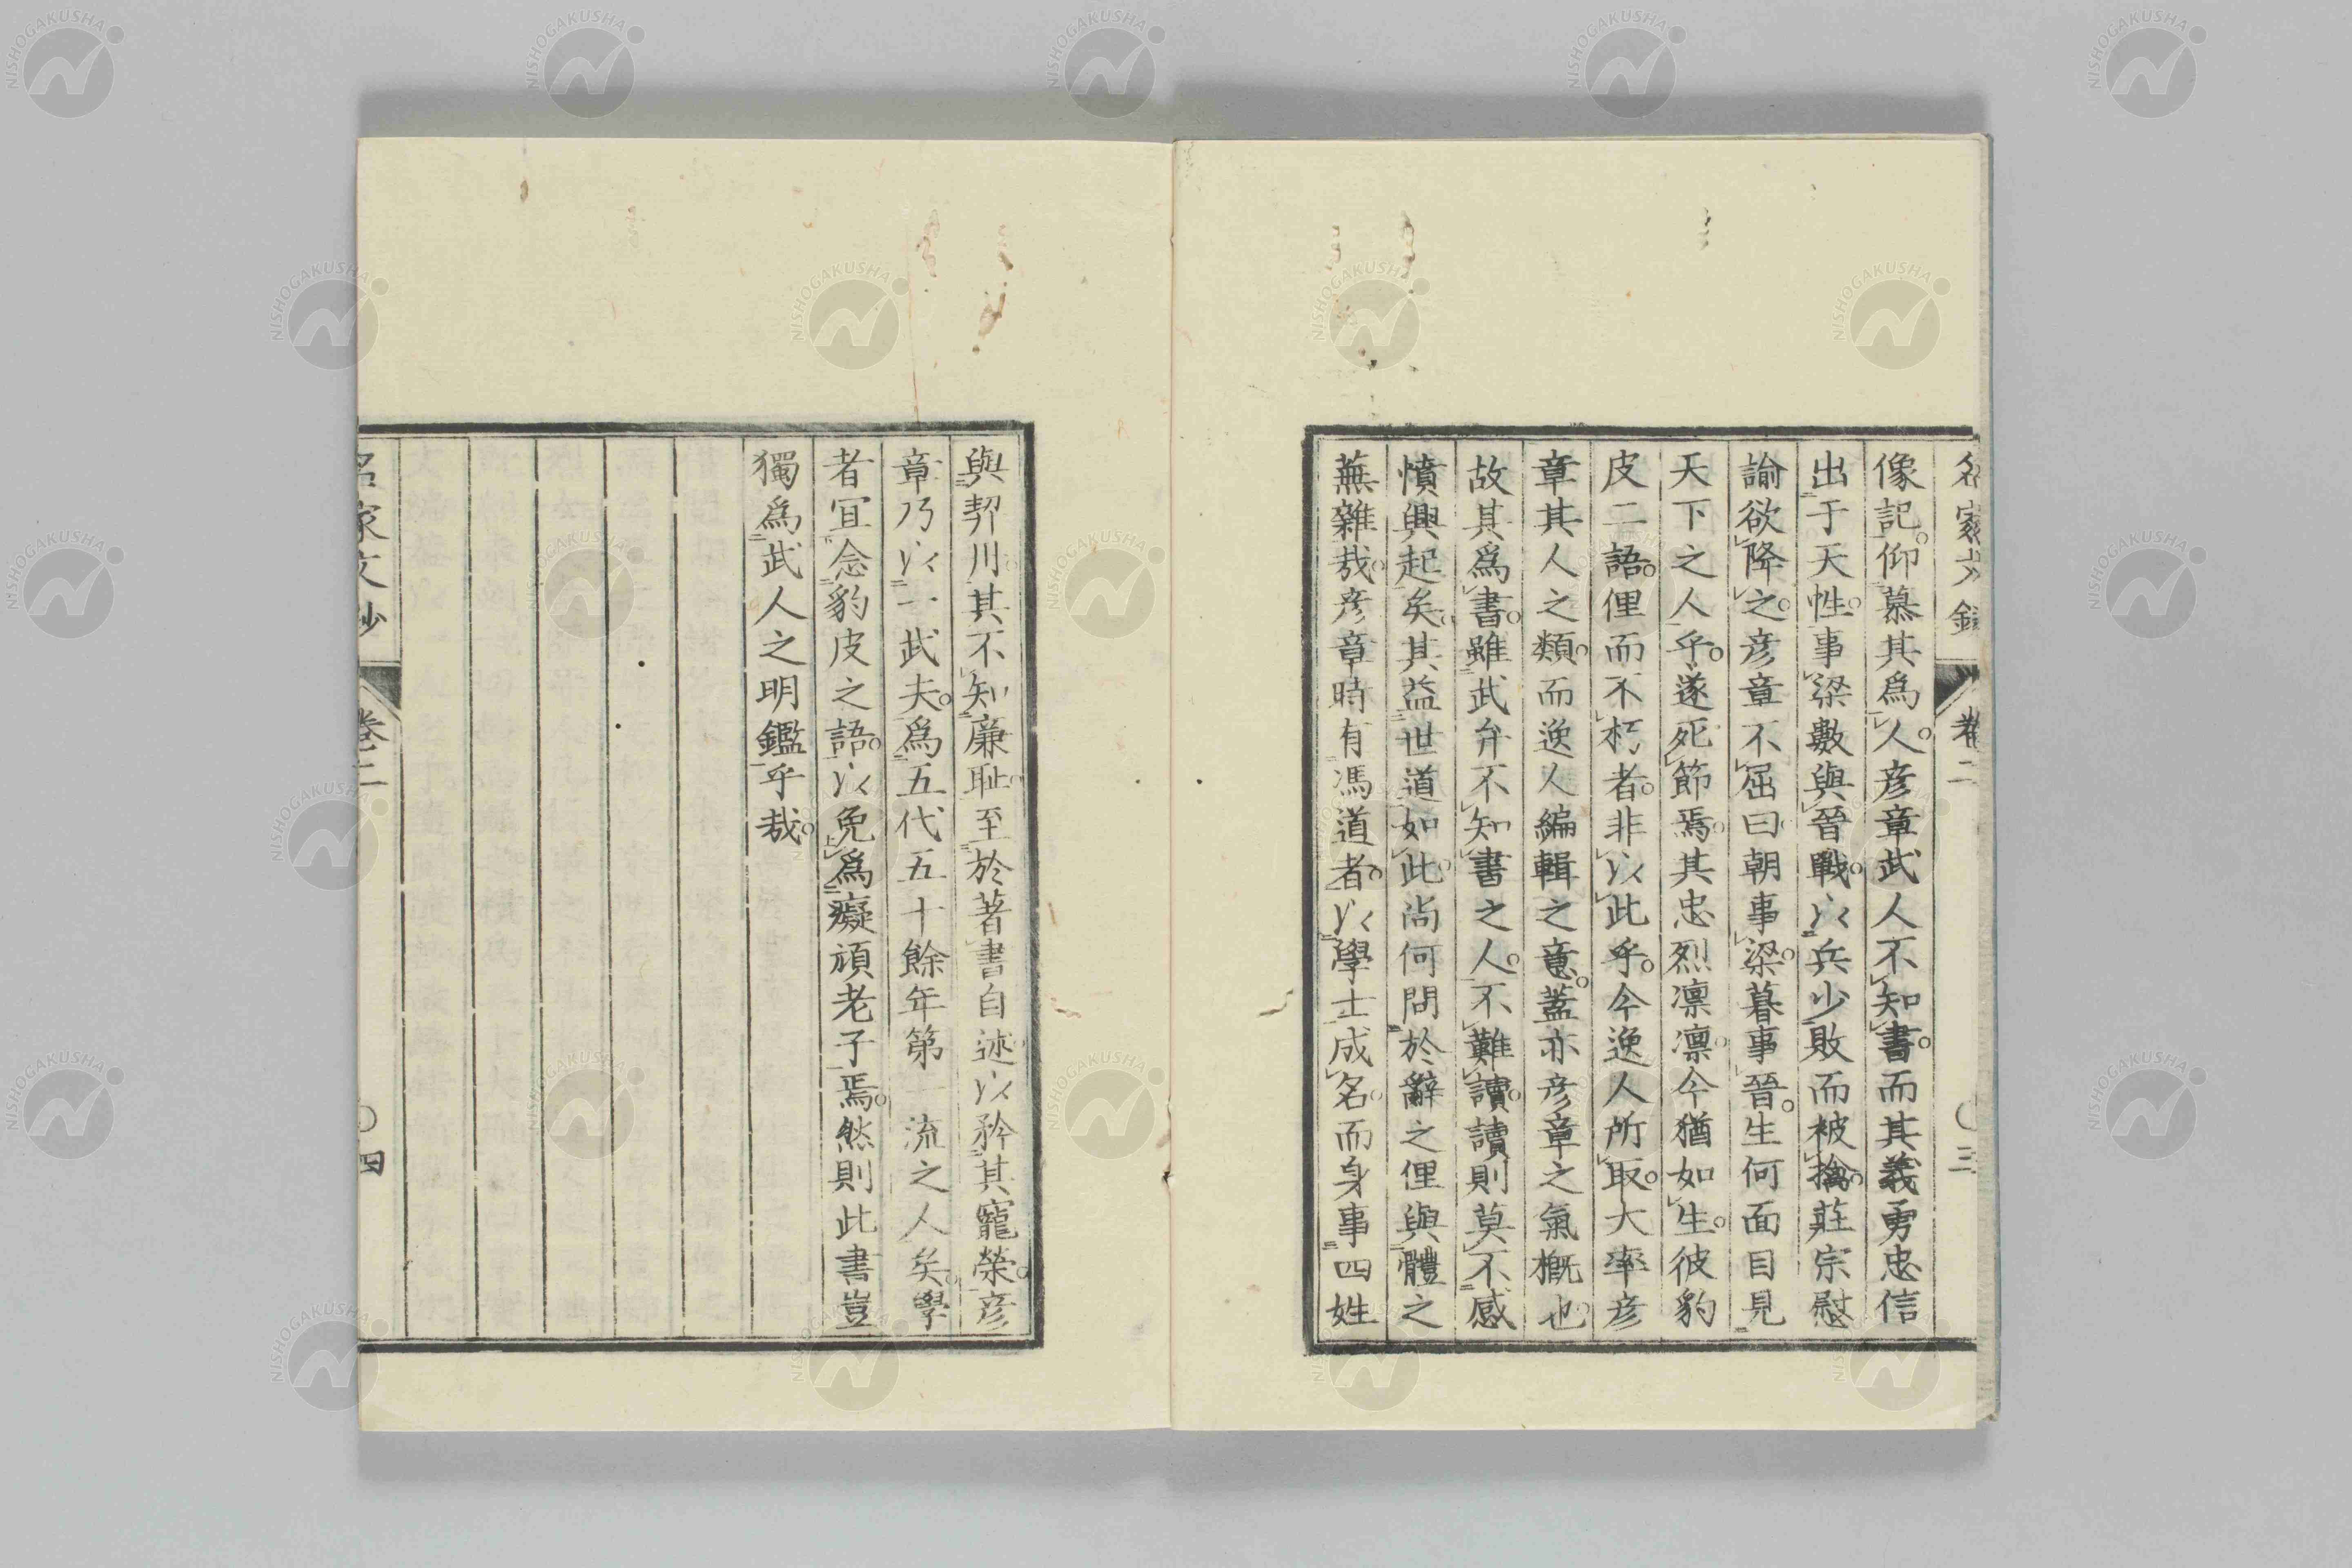 名家文鈔 卷二 〇三
像記。仰慕其爲人。彦章武人不知書。而其義勇忠信
出于天性。事梁數與晉戰。以兵少敗而被擒。莊宗慰
諭欲降之。彦章不屈曰朝事梁。暮事晉。生何面目見
天下之人乎。遂死節焉。其忠烈凛凛。今猶如生。彼豹
皮二語。俚而不朽者。非以此乎。今逸人所取。大率彦
章其人之類。而逸人編輯之意。蓋亦彦章之氣概也。
故其爲書。雖武弁不知書之人。不難讀。讀則莫不感
憤興起矣。其益世道如此。尚何問於辭之俚與體之
蕪雜哉。彦章時有馮道者。以學士成名。而身事四姓
與契川。其不知廉耻。至於著書自述以矜其寵榮。彦
章乃以一武夫。爲五代五十餘年第一流之人矣。學
者宜念豹皮之語。以免爲癡頑老子焉。然則此書豈
獨爲武人之明鑑乎哉。
名家文鈔 卷二 〇四
NISHOGAKUSHA